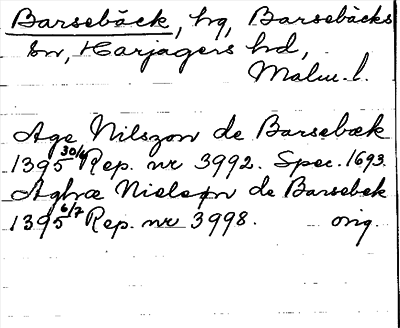 Barsebäck, hg, Barsebäcks
sn, Harjagers hd,
Malm. l.
Age Nilszon de Barsebæk
1395 30/6 Rep. nr 3992. Spec. 1693.
Aghæ Nielsøn de Barsebek
1395 6/7 Rep. nr 3998. orig.